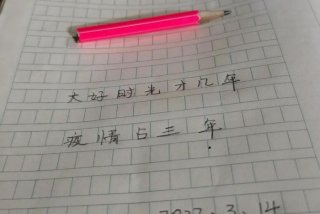 大好时光才几年
疫情占三年
2022.3.14